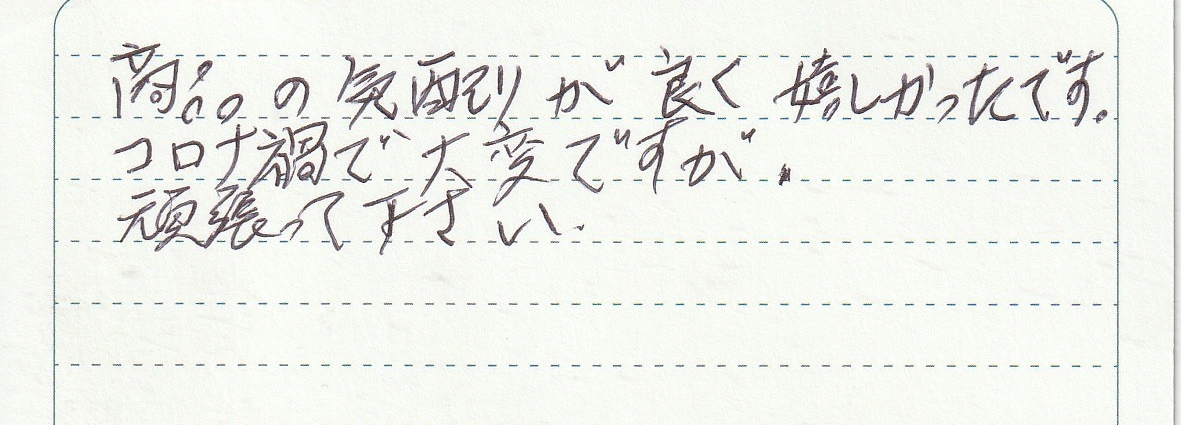 商品の気配りが良く嬉しかったです。
コロナ禍で大変ですが、
頑張って下さい。